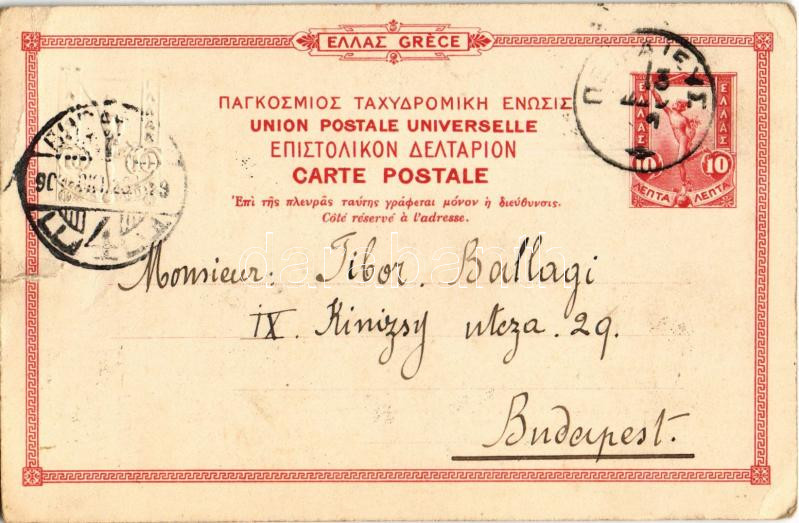 ΕΛΛΑΣ GRÈCE
ΠΑΓΚΟΣΜΙΟΣ ΤΑΧΥΔΡΟΜΙΚΗ ΕΝΩΣΙΣ
UNION POSTALE UNIVERSELLE
ΕΠΙΣΤΟΛΙΚΟΝ ΔΕΛΤΑΡΙΟΝ
CARTE POSTALE
Ἐπὶ τῆς πλευρᾶς ταύτης γράφεται μόνον ἡ διεύθυνσις.
Côté réservé à l'adresse.
ΕΛΛΑΣ ΕΛΛΑΣ
10 10
ΛΕΠΤΑ ΛΕΠΤΑ
Monsieur: Tibor. Ballagi
IX. Kinizsy utcza. 29.
Budapest.
darabanth